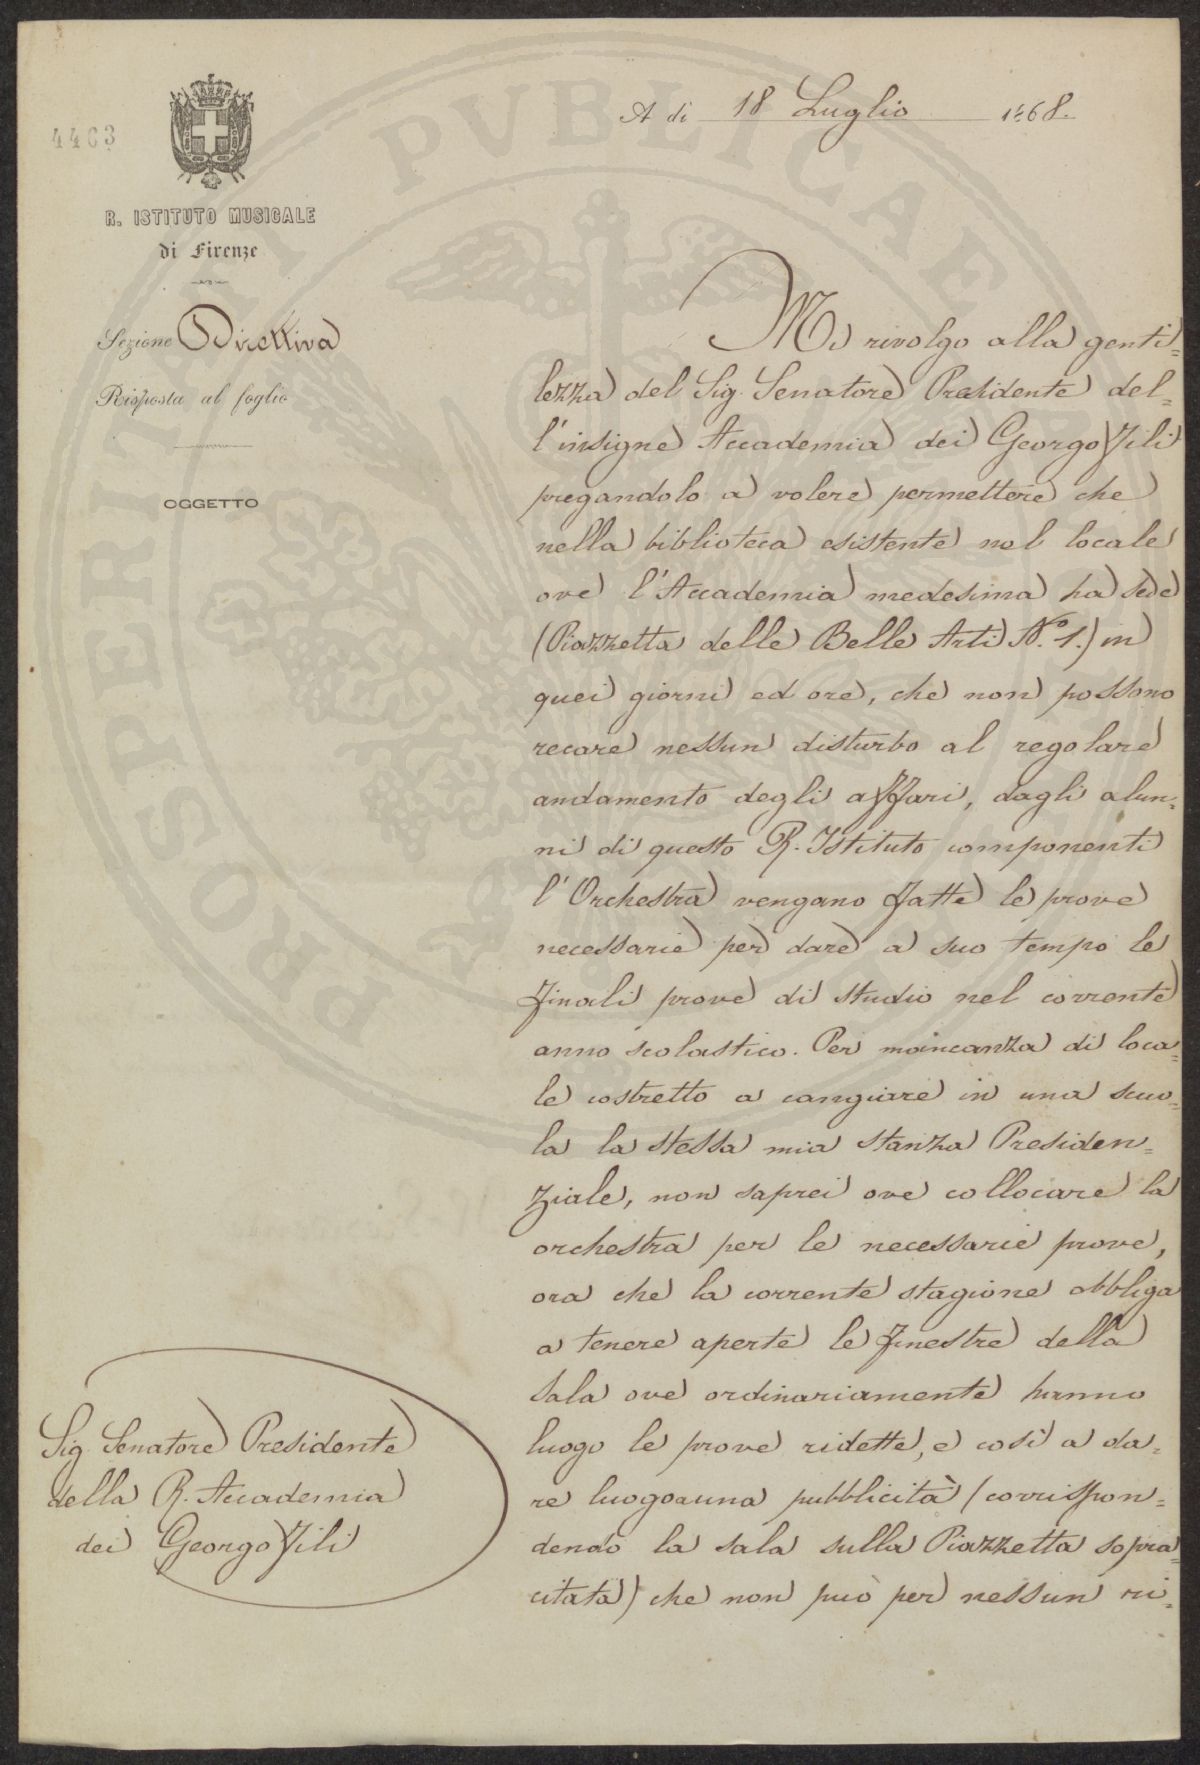 4403
R. ISTITUTO MUSICALE
di Firenze
Sezione Direttiva
Risposta al foglio
OGGETTO
A di 18 Luglio 1868.
Mi rivolgo alla genti=
lezza del Sig. Senatore Presidente del=
l'insigne Accademia dei Georgofili
pregandolo a volere permettere che
nella biblioteca esistente nel locale
ove l'Accademia medesima ha sede
(Piazzetta delle Belle Arti N.º 1.) in
quei giorni ed ore, che non possono
recare nessun disturbo al regolare
andamento degli affari, dagli alun=
ni di questo R. Istituto componenti
l'Orchestra vengano fatte le prove
necessarie per dare a suo tempo le
finali prove di studio nel corrente
anno scolastico. Per mancanza di loca=
le costretto a cangiare in una scuo=
la la stessa mia stanza Presiden=
ziale, non saprei ove collocare la
orchestra per le necessarie prove,
ora che la corrente stagione obbliga
a tenere aperte le finestre della
sala ove ordinariamente hanno
luogo le prove ridette, e così a da=
re luogo a una pubblicità (corrispon=
dendo la sala sulla Piazzetta sopra=
citata) che non può per nessun ri=
Sig. Senatore Presidente
della R. Accademia
dei Georgofili
PROSPERITATI PVBLICAE